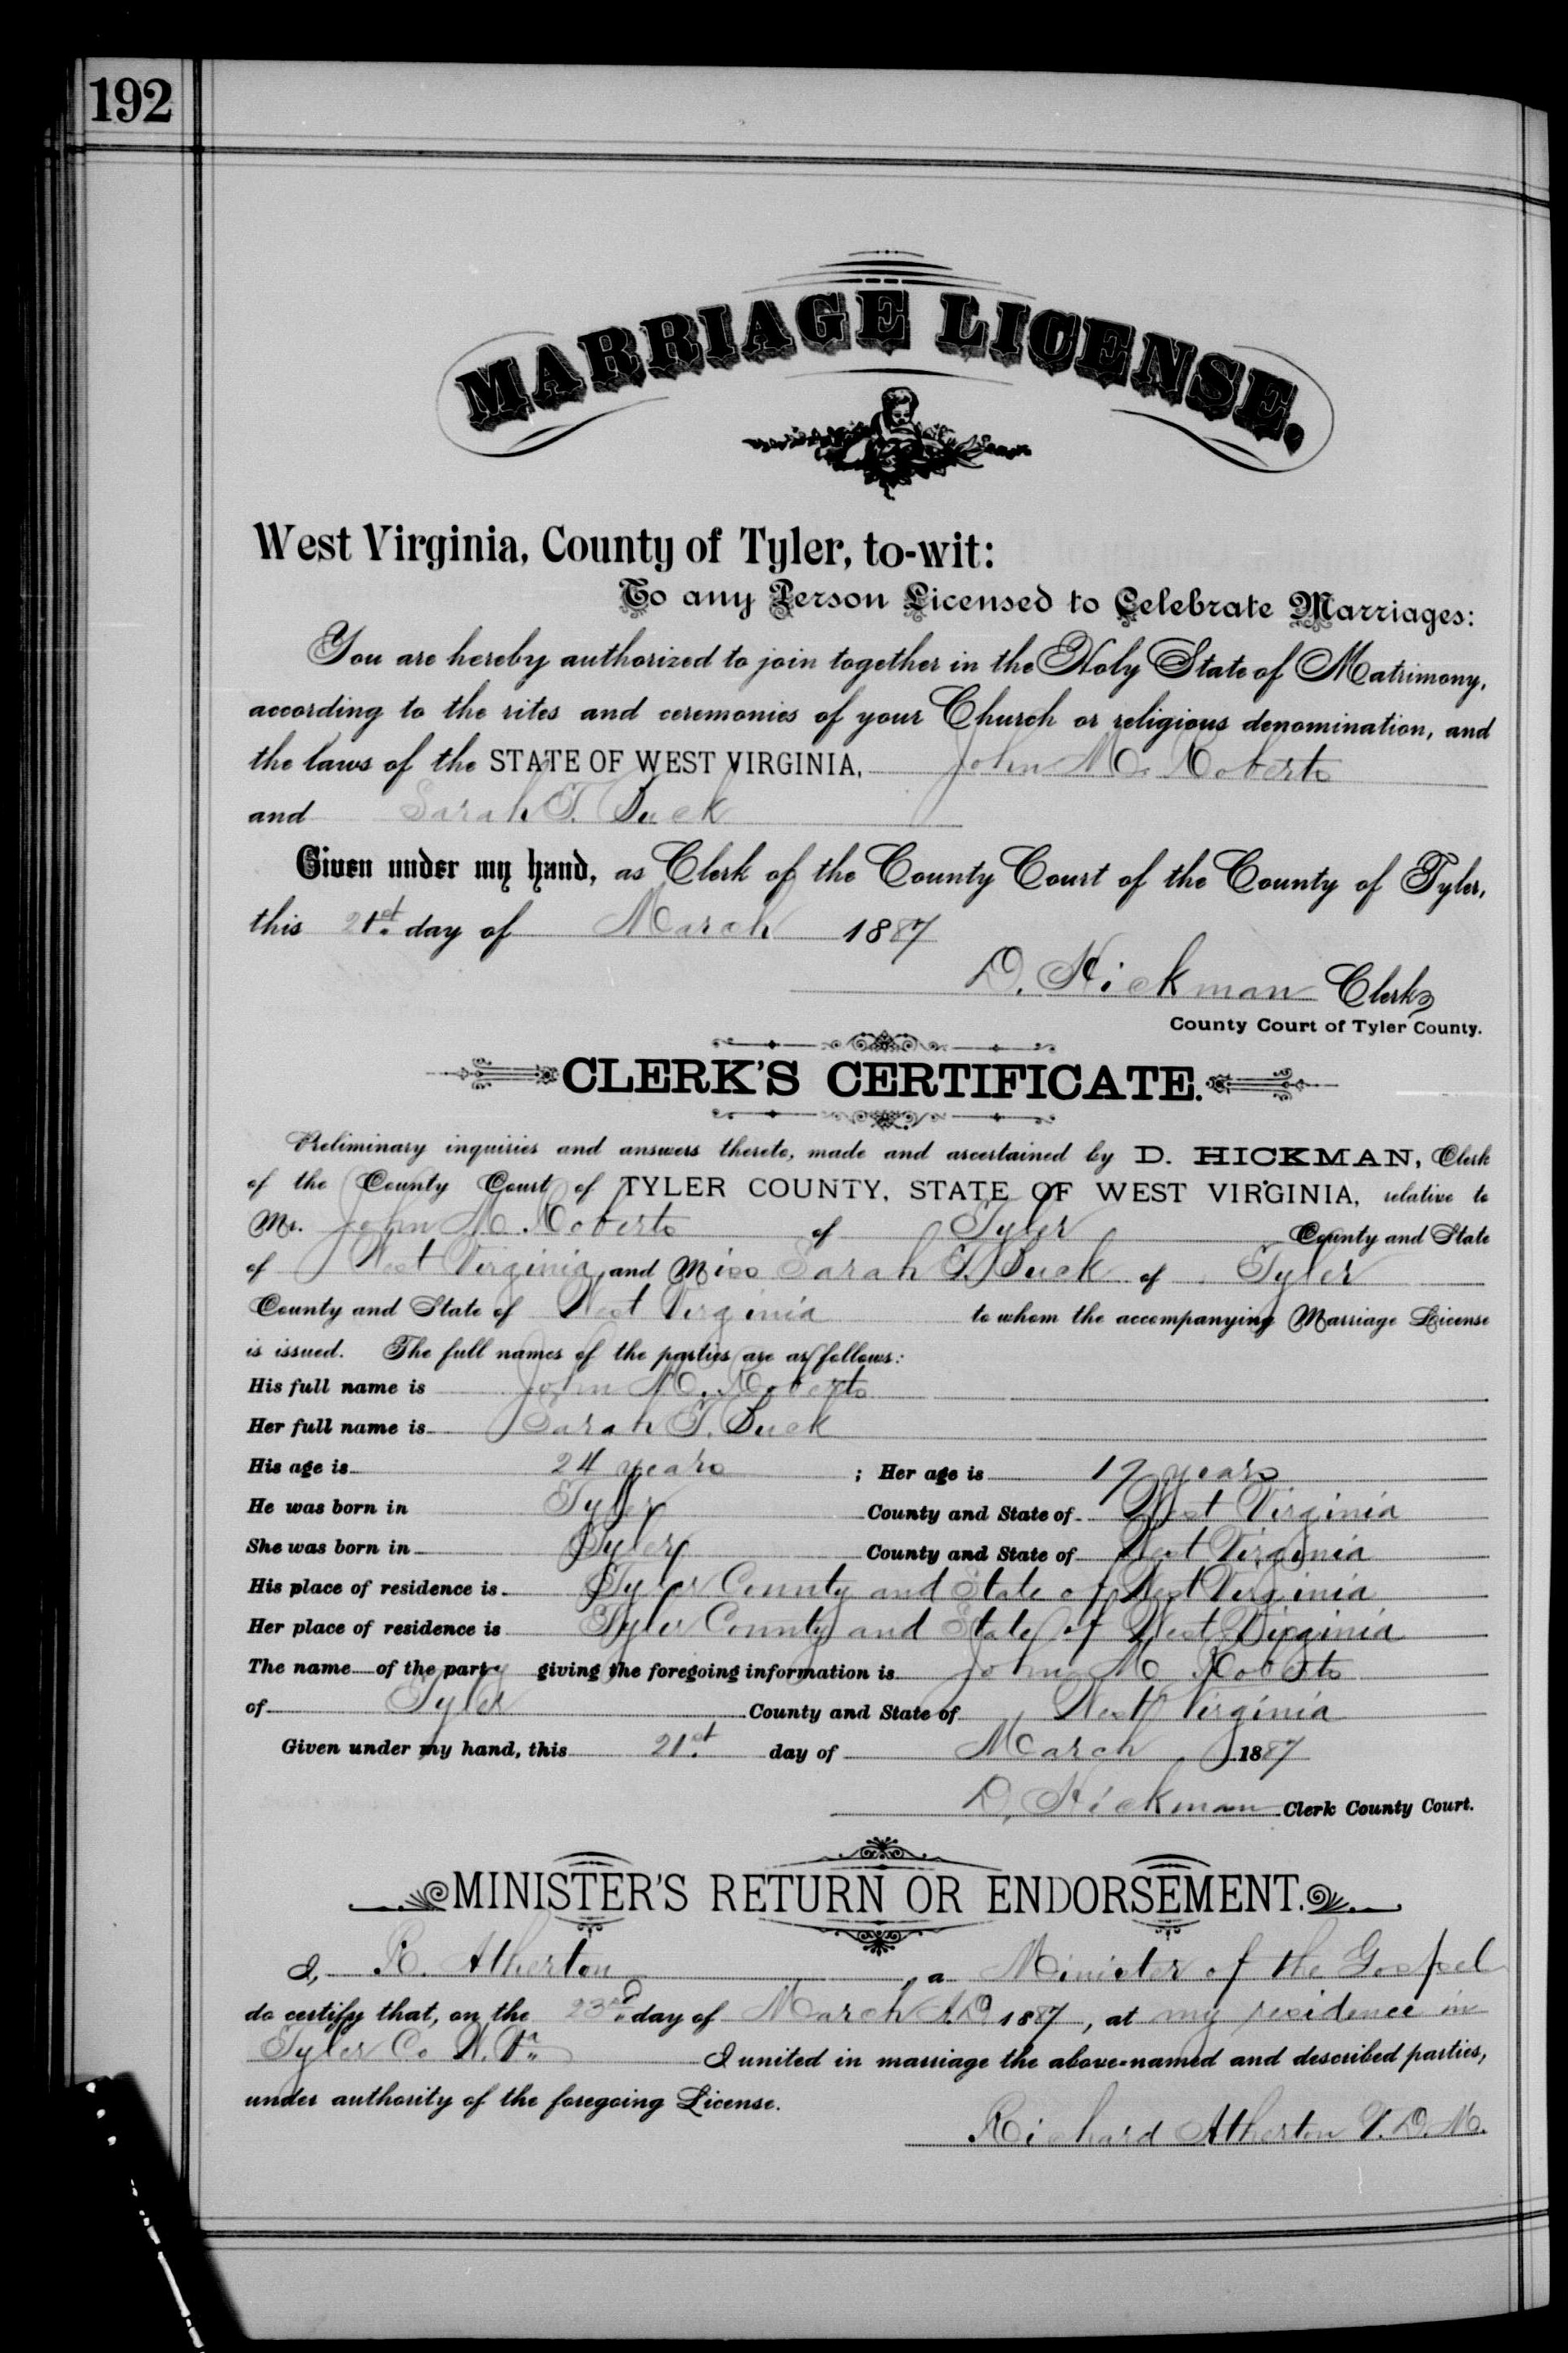 192
MARRIAGE LICENSE.
West Virginia, County of Tyler, to-wit:
To any Person Licensed to Celebrate Marriages:
You are hereby authorized to join together in the Holy State of Matrimony,
according to the rites and ceremonies of your Church or religious denomination, and
the laws of the STATE OF WEST VIRGINIA, John M. Roberts
and Sarah T. Buck
Given under my hand, as Clerk of the County Court of the County of Tyler,
this 21st. day of March 1887
D. Hickman Clerk
County Court of Tyler County.
CLERK'S CERTIFICATE.
Preliminary inquiries and answers thereto, made and ascertained by D. HICKMAN, Clerk
of the County Court of TYLER COUNTY, STATE OF WEST VIRGINIA, relative to
Mr. John M. Roberts of Tyler County and State
of West Virginia, and Miss Sarah T. Buck of Tyler
County and State of West Virginia to whom the accompanying Marriage License
is issued. The full names of the parties are as follows:
His full name is John M. Roberts
Her full name is Sarah T. Buck
His age is 24 years ; Her age is 17 years
He was born in Tyler County and State of West Virginia
She was born in Tyler County and State of West Virginia
His place of residence is Tyler County and State of West Virginia
Her place of residence is Tyler County and State of West Virginia
The name of the party giving the foregoing information is John M Roberts
of Tyler County and State of West Virginia
Given under my hand, this 21st. day of March 1887
D. Hickman Clerk County Court.
MINISTER'S RETURN OR ENDORSEMENT.
I, R. Atherton, a Minister of the Gospel
do certify that, on the 23rd. day of March A.D 1887, at my residence in
Tyler Co W. Va. I united in marriage the above-named and described parties,
under authority of the foregoing License.
Richard Atherton V.D.M.